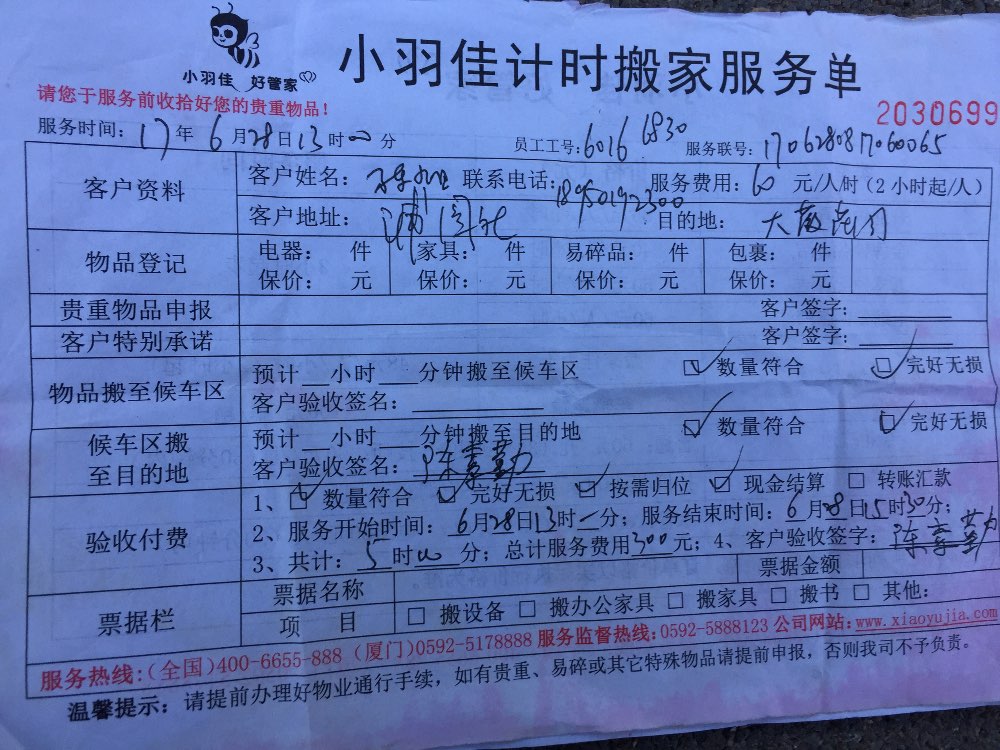 小羽佳 好管家
小羽佳计时搬家服务单
请您于服务前收拾好您的贵重物品！
2030699
服务时间：17年6月28日13时00分 员工工号：6016 6830 服务联号：1706280817060065
客户资料
客户姓名： 联系电话：18950192300 服务费用：60元/人/时（2小时起/人）
客户地址： 目的地：
物品登记
电器： 件 家具： 件 易碎品： 件 包裹： 件
保价： 元 保价： 元 保价： 元 保价： 元
贵重物品申报 客户签字：
客户特别承诺 客户签字：
物品搬至候车区
预计 小时 分钟搬至候车区 数量符合 完好无损
客户验收签名：
候车区搬至目的地
预计 小时 分钟搬至目的地 数量符合 完好无损
客户验收签名：
验收付费
1、 数量符合 完好无损 按需归位 现金结算 转账汇款
2、服务开始时间：6月28日13时 分；服务结束时间：6月28日15时30分；
3、共计：5时00分；总计服务费用300元；4、客户验收签字：
票据栏
票据名称 票据金额
项 目 搬设备 搬办公家具 搬家具 搬书 其他：
服务热线：（全国）400-6655-888（厦门）0592-5178888 服务监督热线：0592-5888123 公司网站：www.xiaoyujia.com
温馨提示：请提前办理好物业通行手续，如有贵重、易碎或其它特殊物品请提前申报，否则我司不予负责。